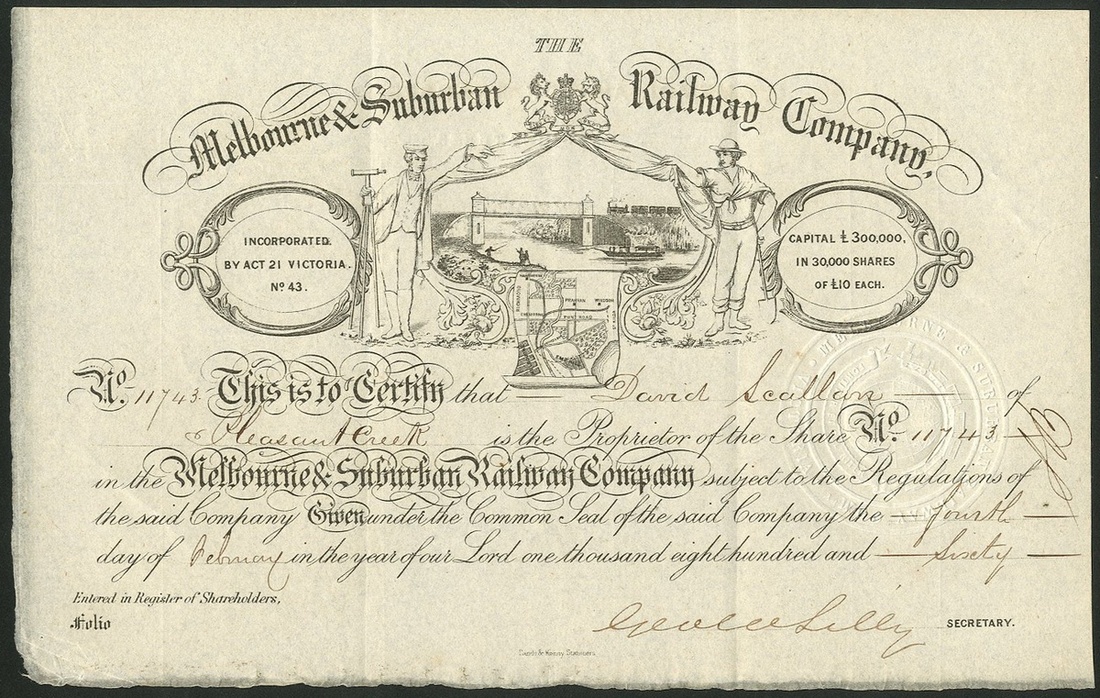 THE
Melbourne & Suburban Railway Company,
INCORPORATED.
BY ACT 21 VICTORIA.
No 43.
CAPITAL £300,000,
IN 30,000 SHARES
OF £10 EACH.
PRAHRAN WINDSOR
PUNT ROAD
No. 11743 This is to Certify that David Scallan of
Pleasant Creek is the Proprietor of the Share No. 11743
in the Melbourne & Suburban Railway Company subject to the Regulations of
the said Company Given under the Common Seal of the said Company the fourth
day of February in the year of our Lord one thousand eight hundred and Sixty
Entered in Register of Shareholders,
Folio
SECRETARY.
MELBOURNE & SUBURBAN